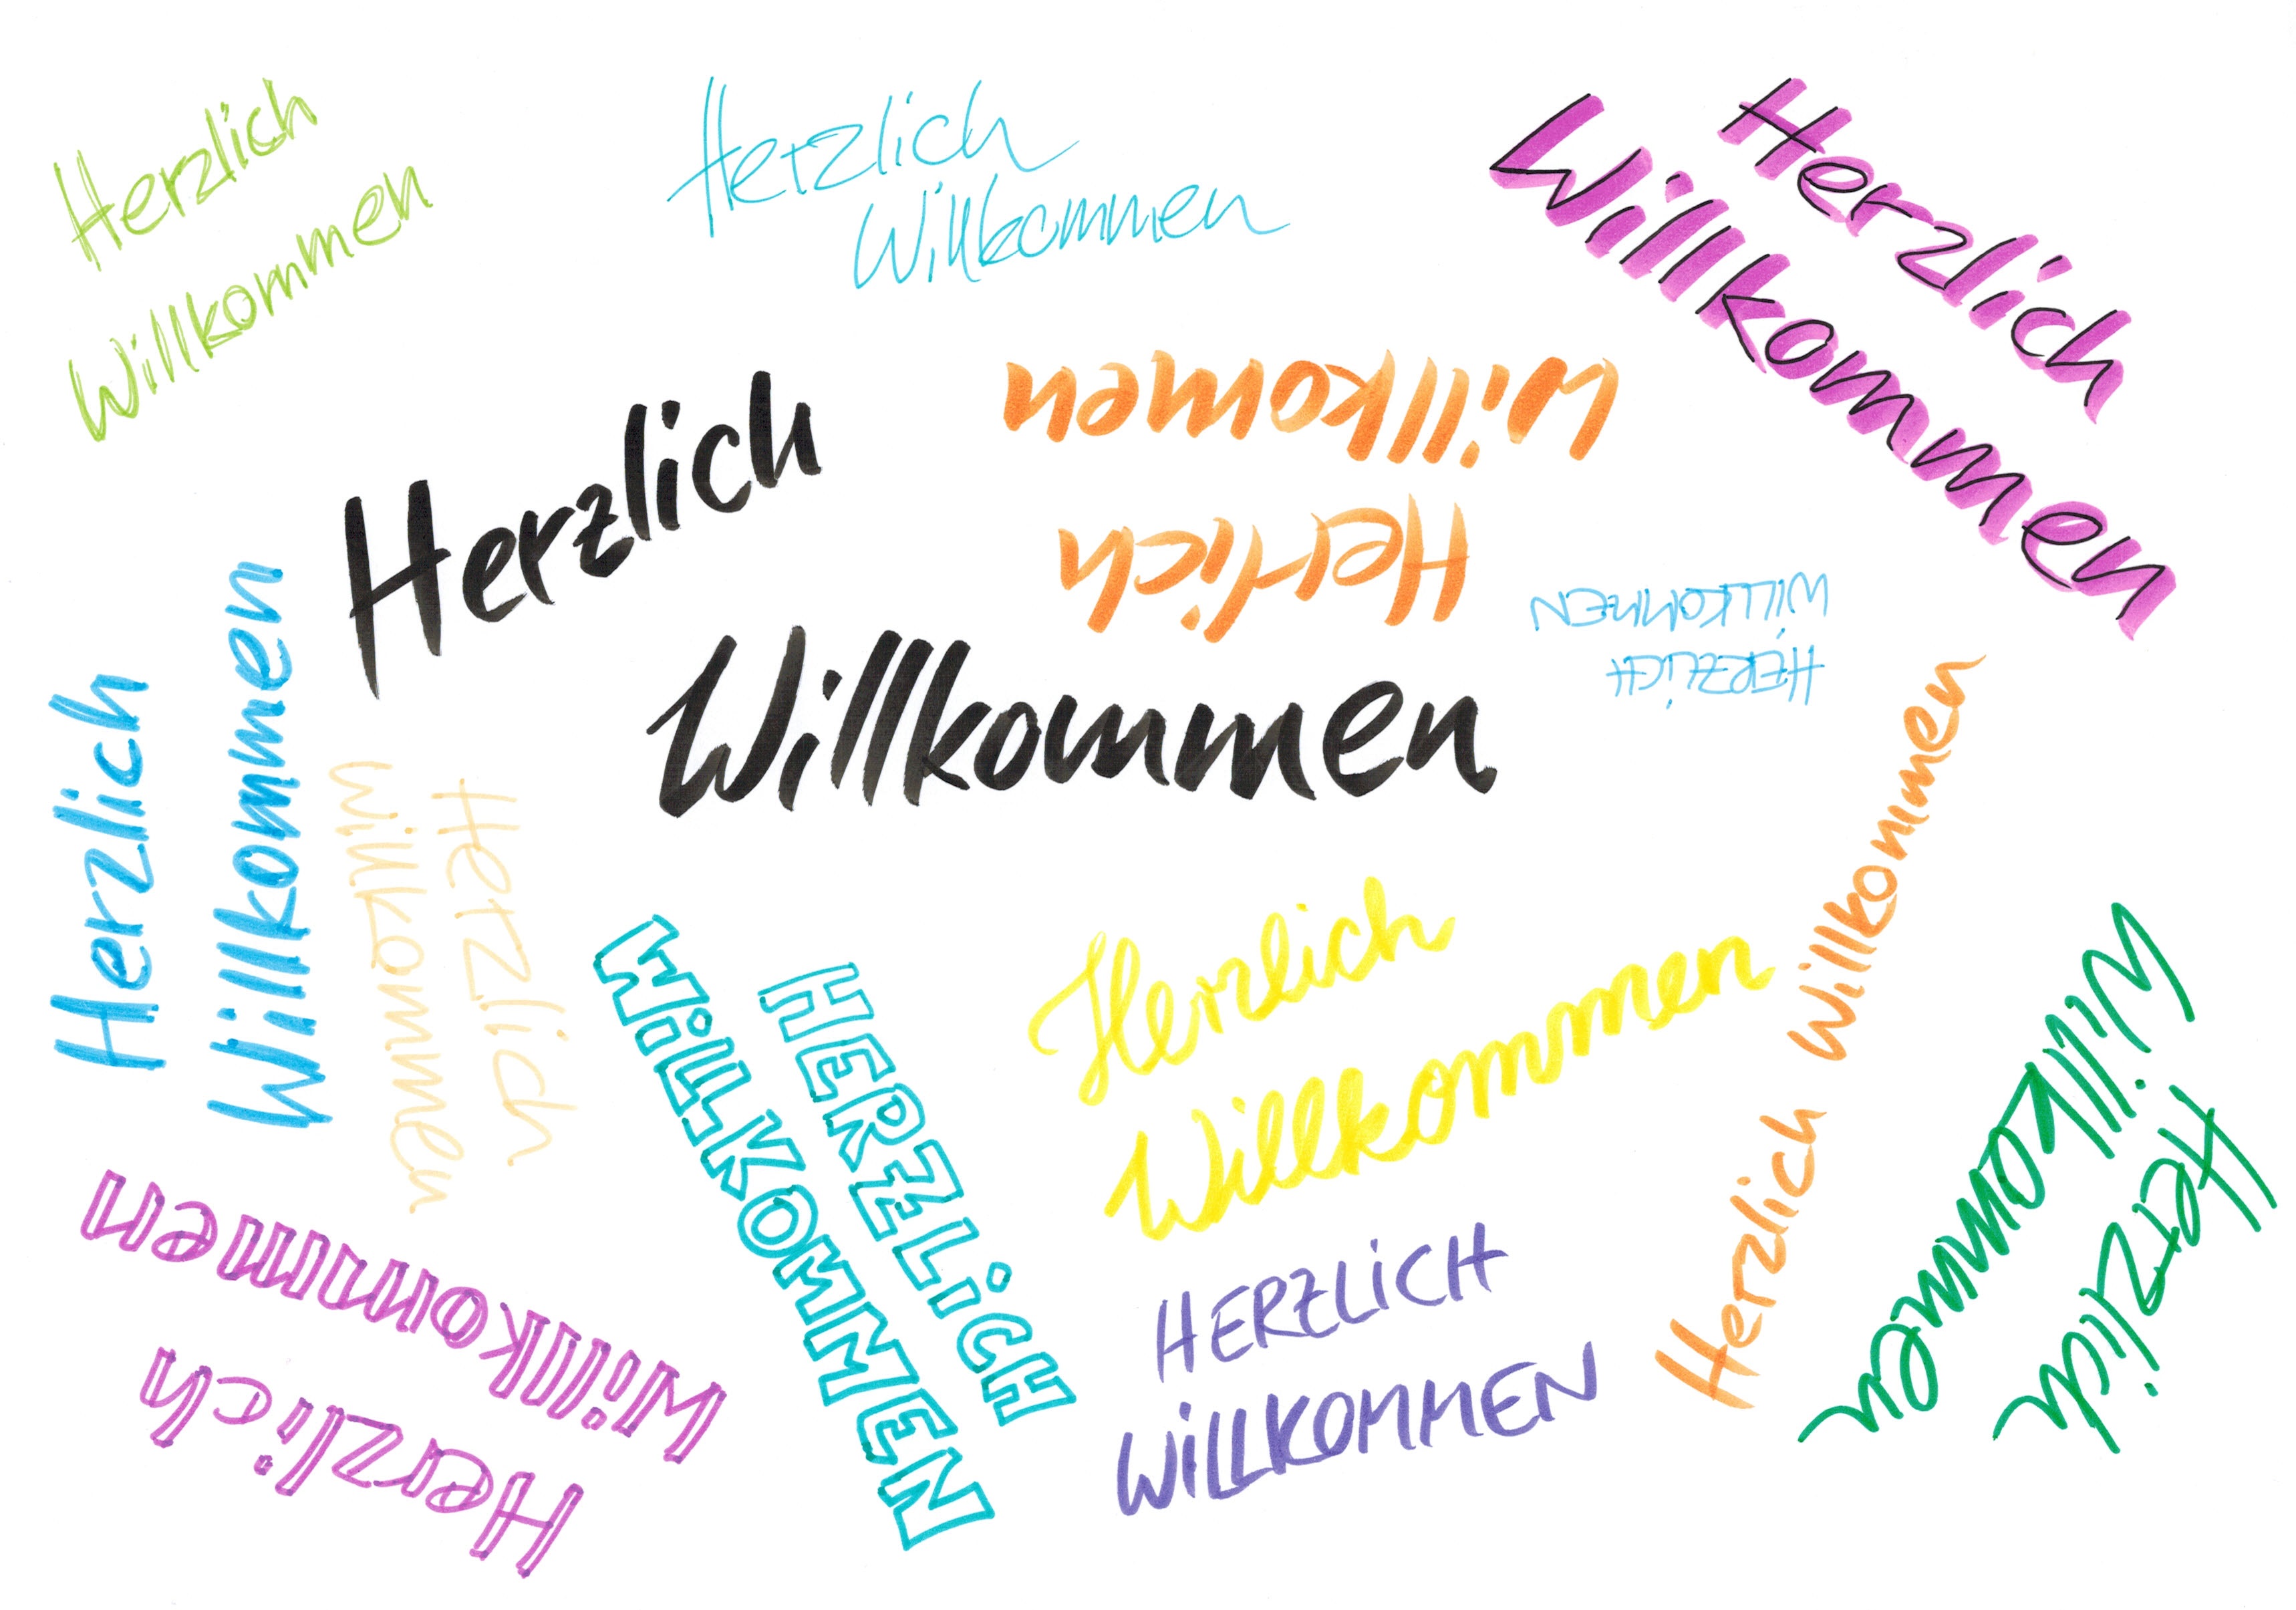 Herzlich
Willkommen
Herzlich
Willkommen
Herzlich
Willkommen
Herzlich
Willkommen
Herlich
Willkomen
HERZLiCH
WiLLKOMMEN
Herzlich
Willkommen
Herzlich
Willkommen
HERZLiCH
WiLLKOMMEN
Herzlich
Willkommen
Herzlich Willkommen
Herzlich
Willkommen
Herzlich
Willkommen
HERZLiCH
WiLLKOMMEN